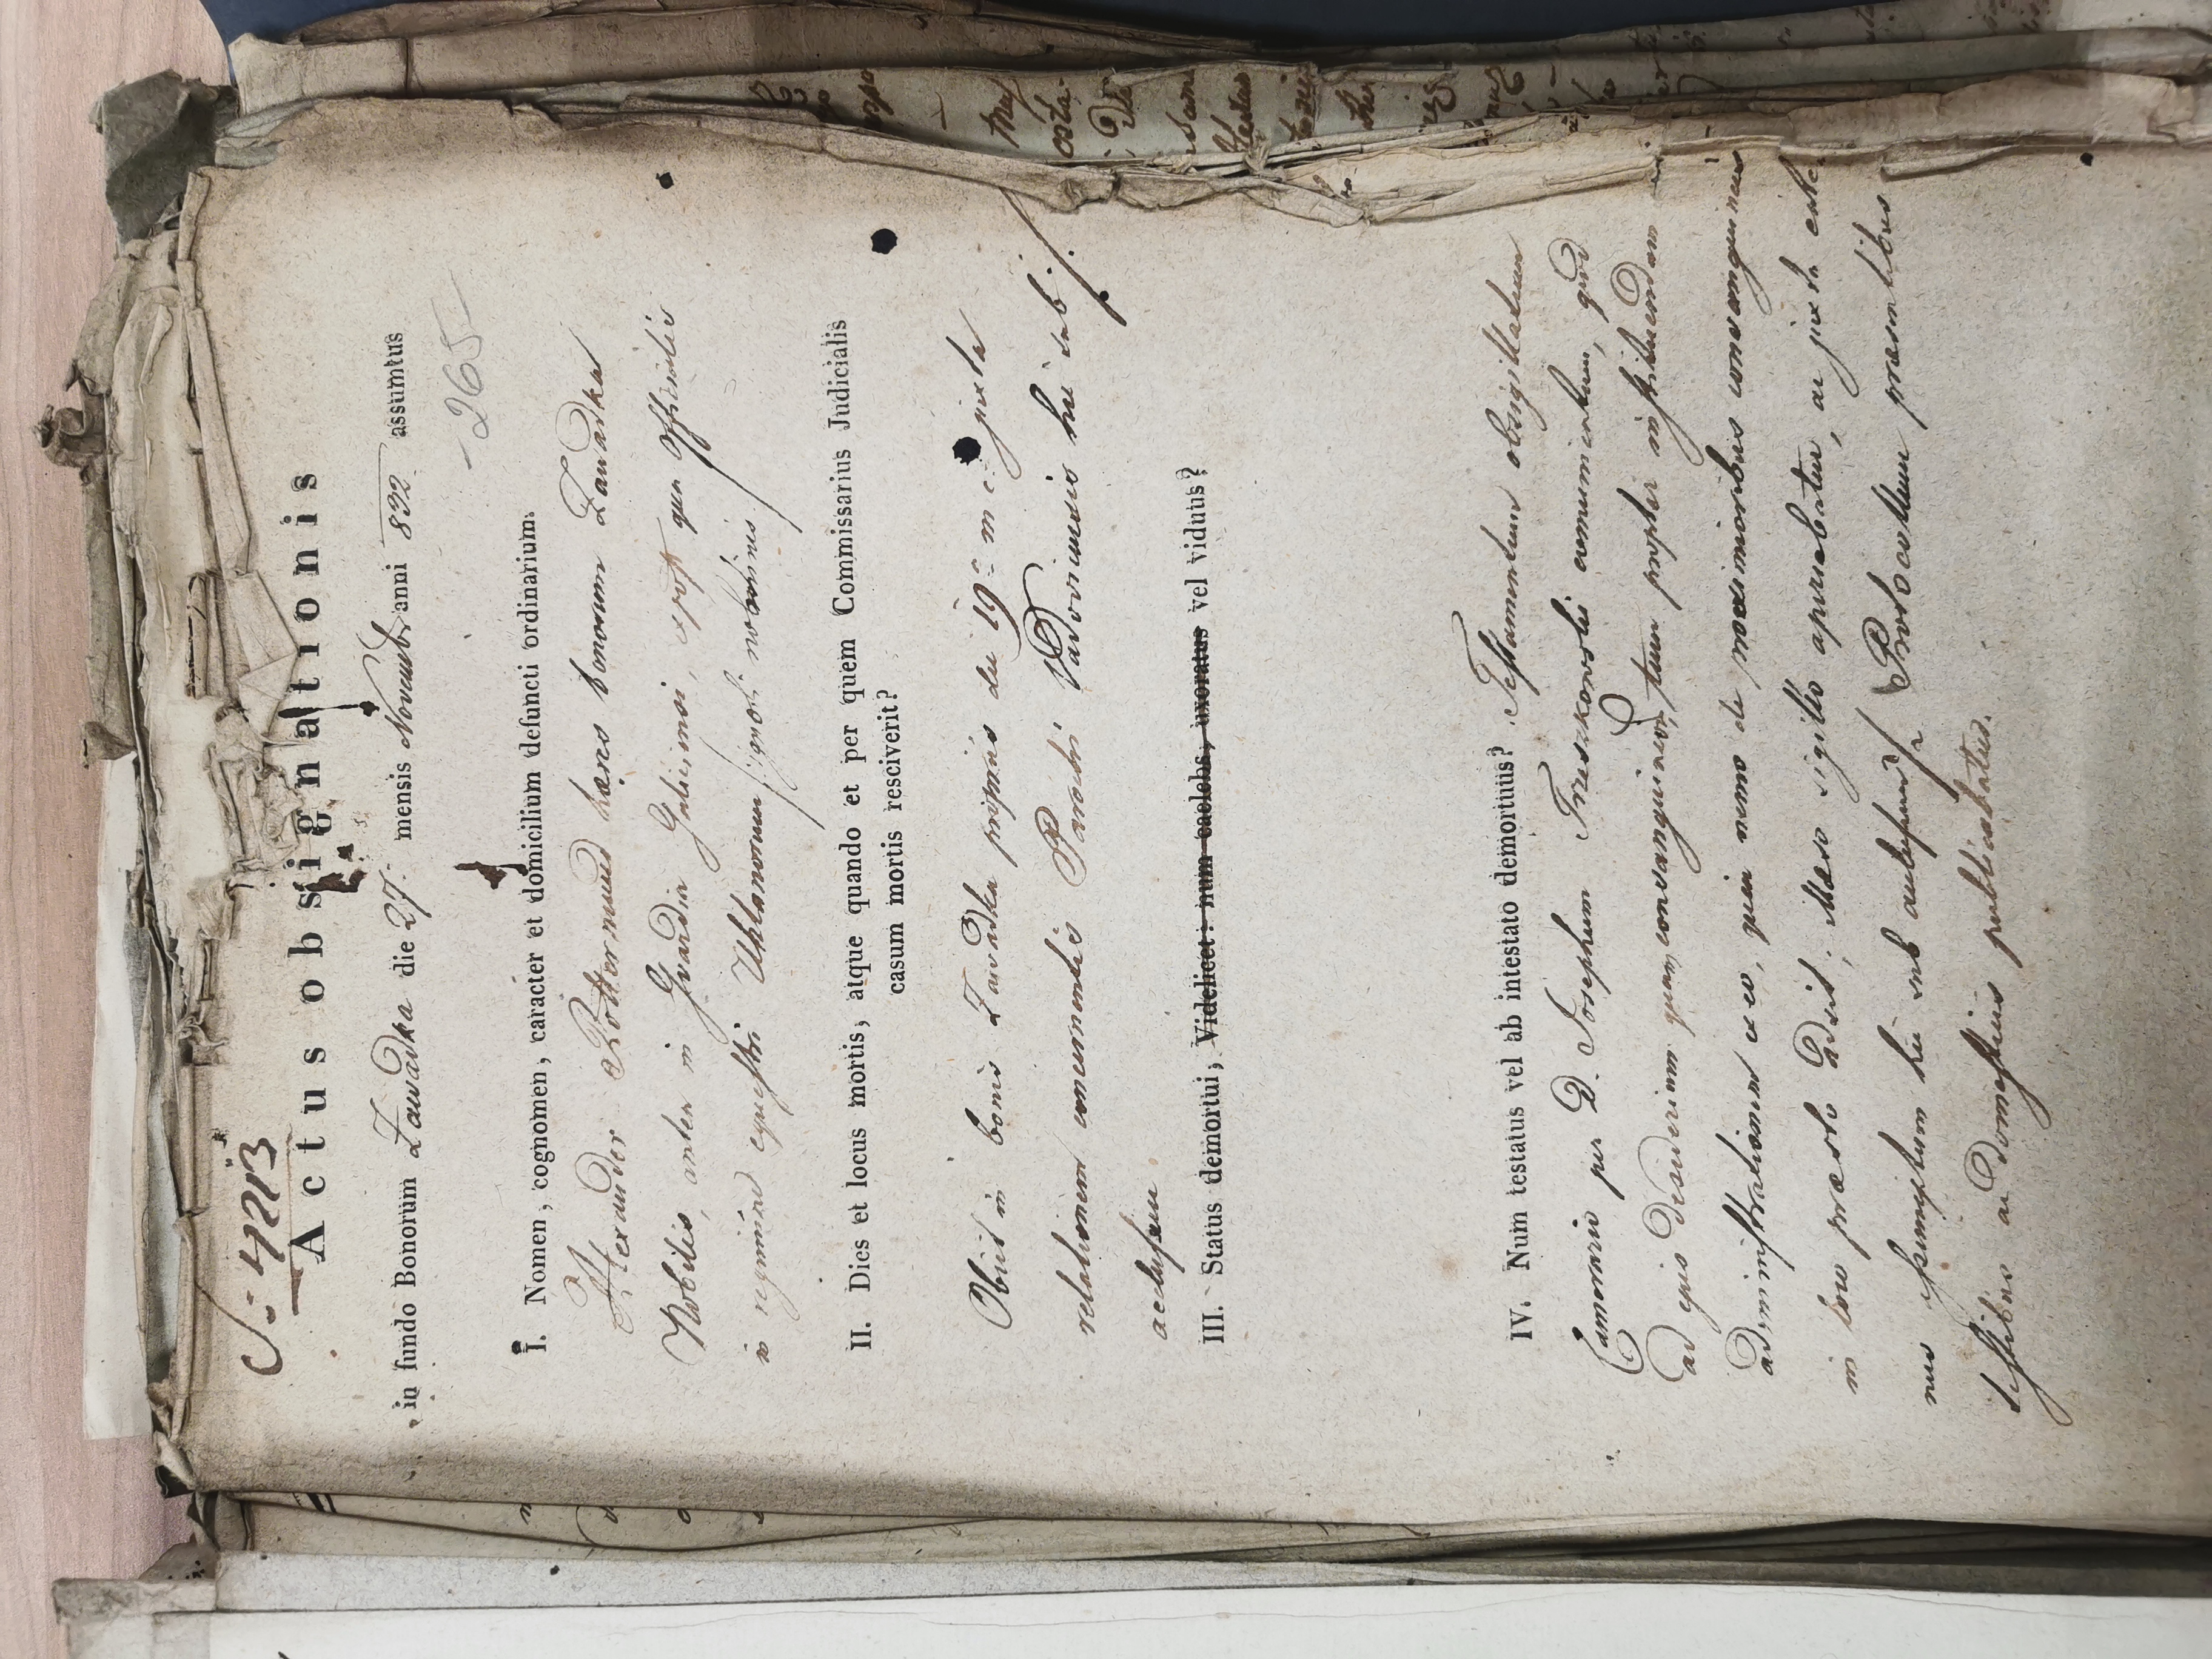 Actus obsignationis
in fundo Bonorum Zawadka die 27. mensis Novembr. anni 832 assumtus
- 265 -
I. Nomen, cognomen, caracter et domicilium defuncti ordinarium.
Alexander Rottermund hæres bonorum Zawadka
Nobilis, antea in Guardia, expost qua Officialis
in regimine equestri Uhlanorum nominis
II. Dies et locus mortis, atque quando et per quem Commissarius Judicialis
casum mortis resciverit?
Obiit in bonis Zawadka propriis die 19 m. c. juxta
relationem concernentis Parochi Vadovicensis hic sub ./.
acclusam
III. Status demortui, Videlicet: num caelebs, uxoratus vel viduus?
IV. Num testatus vel ab intestato demortuus? Testamentum obsigillatum
Camerario per D. Josephum communicatum, quod
ad ejus desiderium quam consanguinei, tum propter instituendam
administrationem ex eo, quia nemo de proximioribus consanguineus
in loco præsto adest, mæro sigillo aperiebatur, ac juxta exte-
nus hic sub Protocollum præsentibus
testibus ac domesticis publicabatur.